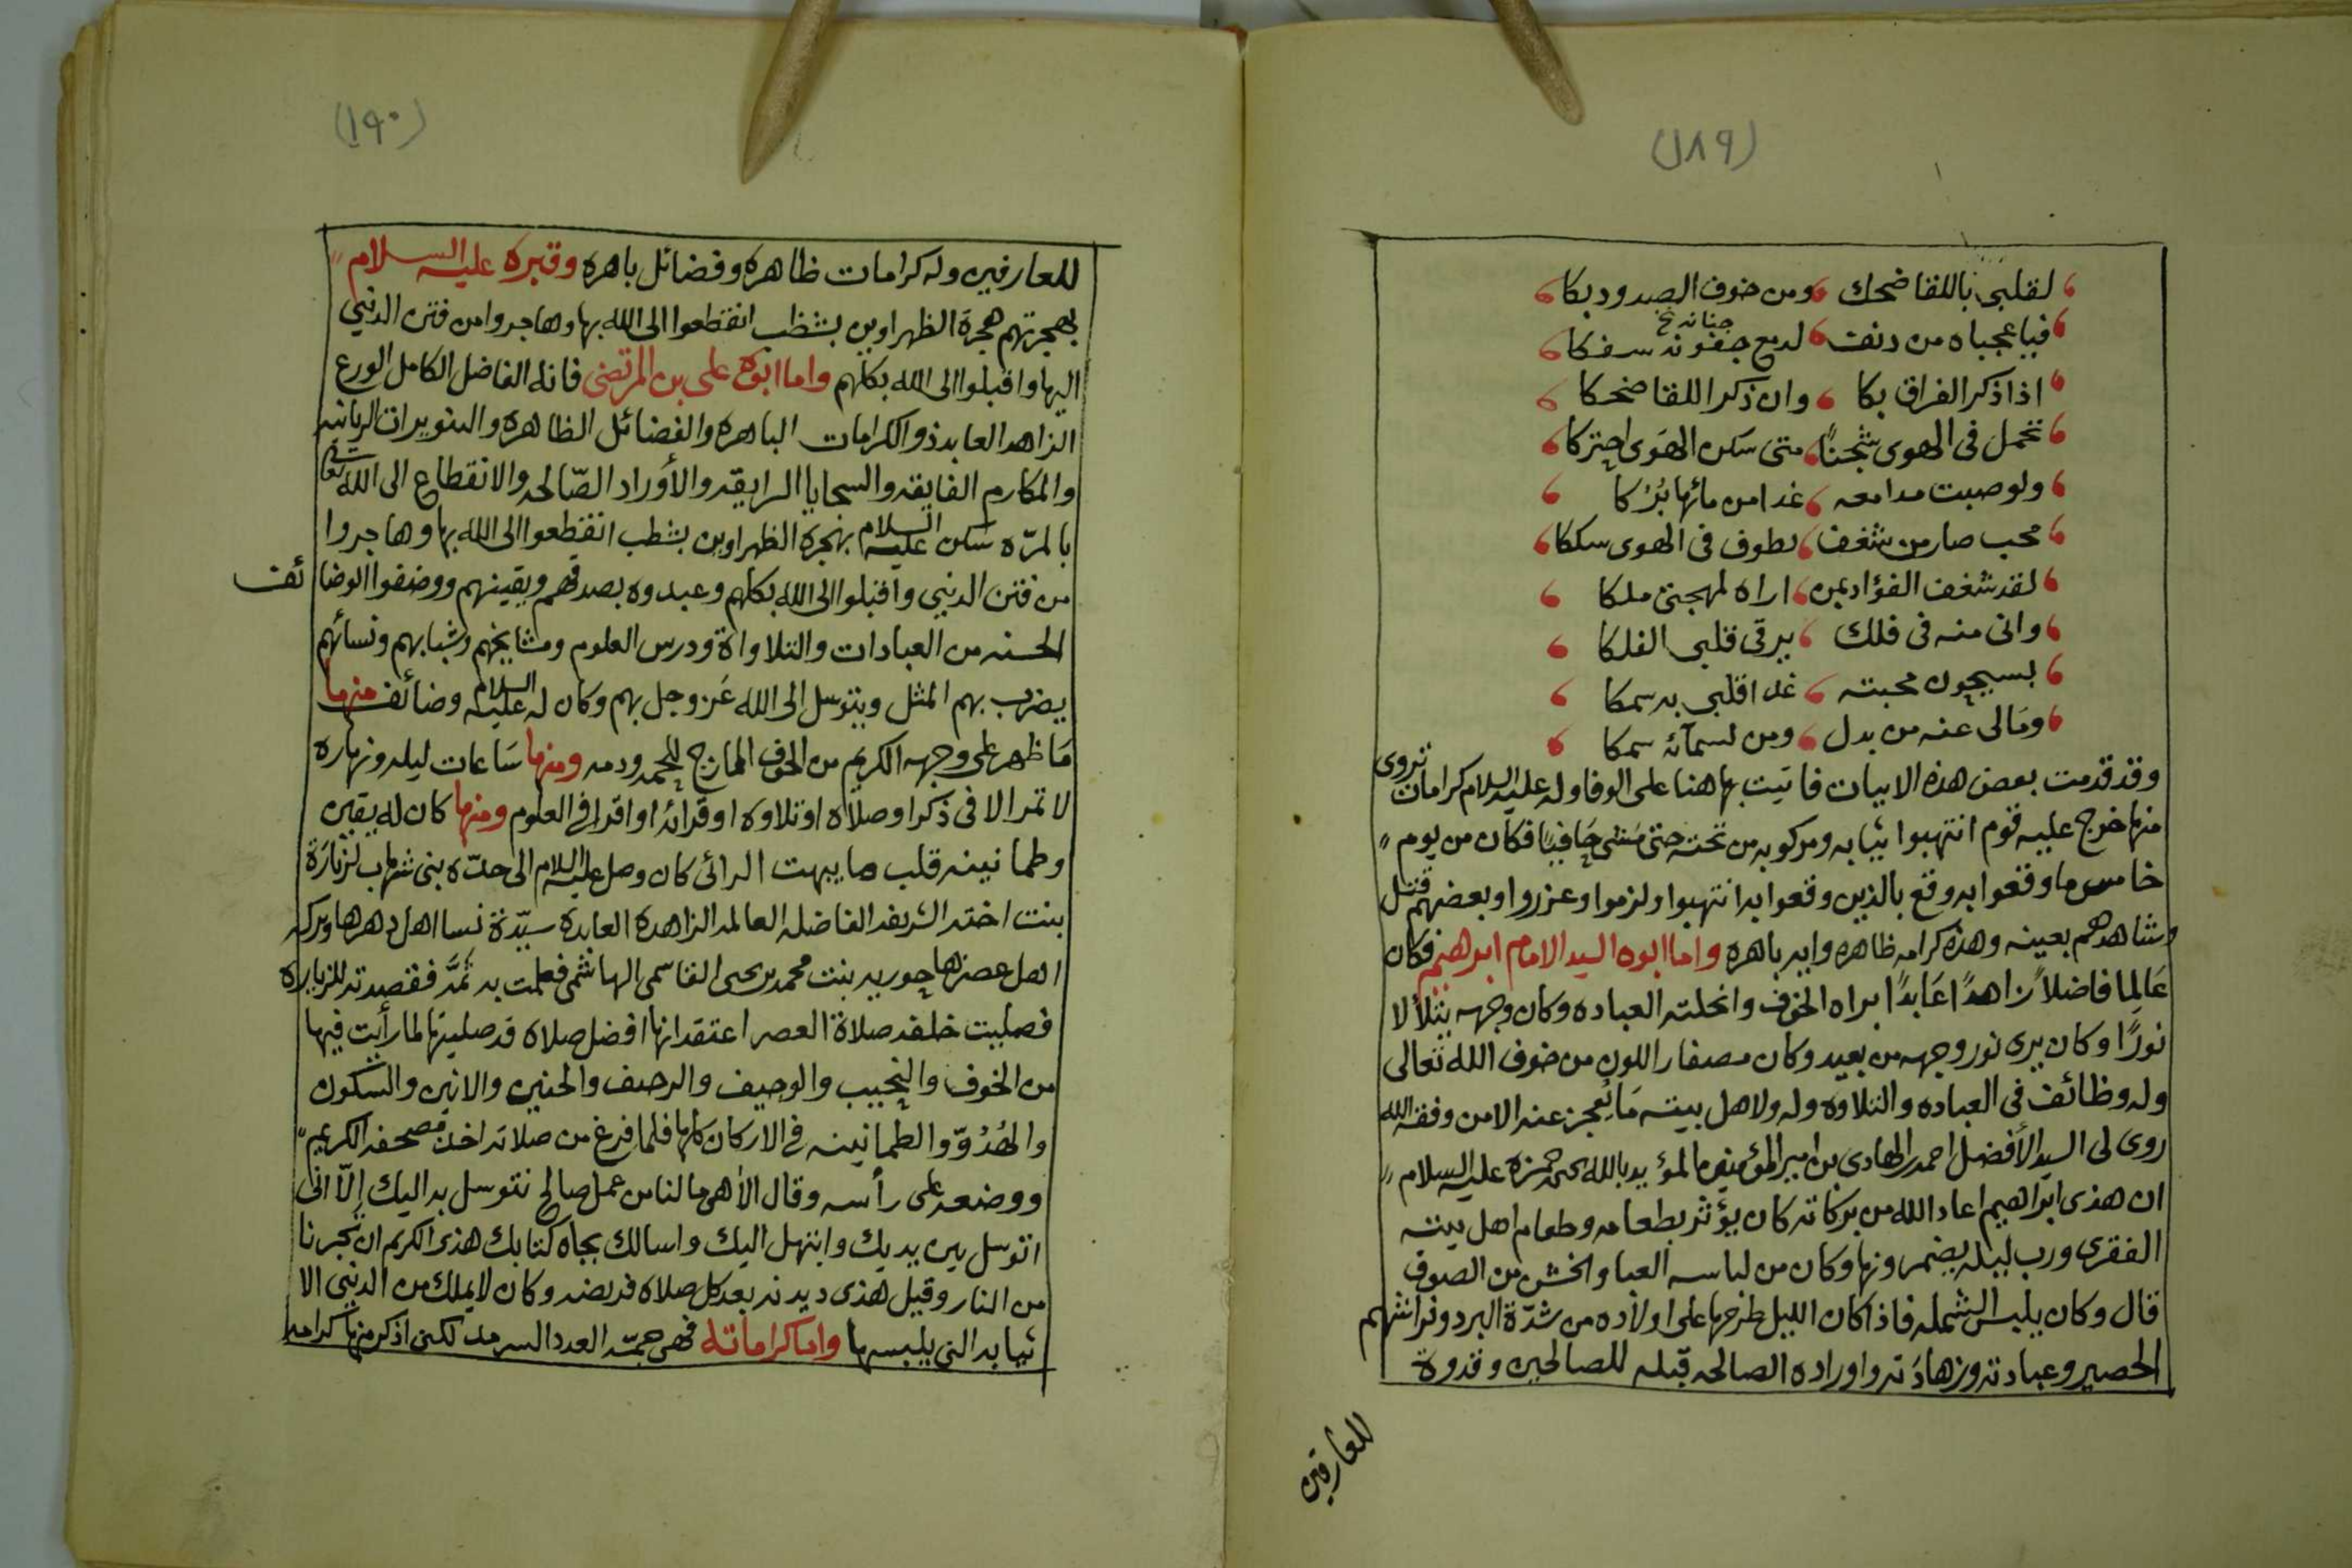 (١٨٩)
لقلبي باللقا ضحك ومن خوف الصدود بكا
فيا عجباه من دنف لدمع جفونه سفكا
جنانه خ
اذا ذكر الفراق بكا وان ذكر اللقا ضحكا
تحمل في الهوى شجنًا متى سكن الهوى احتركا
ولو صبت مدامعه غدا من مائها بُرَكا
محب صار من شغف يطوف في الهوى سككا
لقد شغف الفؤاد بمن اراه لمهجتي ملكا
واني منه في فلك يرقى قلبي الفلكا
بسيحون محبته غدا قلبي به سمكا
ومالي عنه من بدل ومن لسمائه سمكا
وقد قدمت بعض هذه الابيات فاتيت بها هنا على الوفا وله عليه السلام كرامات تروى
منها خرج عليه قوم انتهبوا ثيابه ومركوبه من تحته حتى مشى حافيًا فكان من يوم
خامس ما وقعوا به وقع بالذين وقعوا به انتهبوا ولزموا وعزروا وبعضهم قتل
وشاهدهم بعينه وهذه كرامه ظاهره وايه باهره واما ابوه السيد الامام ابرهيم فكان
عَالِما فاضلاً زاهدًا عَابدًا براه الخوف وانحلته العباده وكان وجهه يتلألا
نورًا وكان يرى نور وجهه من بعيد وكان مصفار اللون من خوف الله تعالى
وله وظائف في العباده والتلاوه وله ولاهل بيته مَا يُعجز عنه الا من وفقه الله
روى لي السيد الأفضل احمد الهادي بن امير المؤمنين المؤيد بالله يحيى حمزه عليه السلام
ان هذى ابراهيم اعاد الله من بركاته كان يؤثر بطعامه وطعام اهل بيته
الفقرى ورب ليله يضمرونها وكان من لباسه العبا والخشن من الصوف
قال وكان يلبس الشمله فاذا كان الليل طرحها على اولاده من شدّة البرد وفراشهم
الحصير وعبادته وزهادَته واوراده الصالحه قبله للصالحين وقدوة
للعارفين
(١٩٠)
للعارفين وله كرامات ظاهره وفضائل باهره وقبره عليه السلام
بهجرتهم هجرة الظهراوين بشظب انقطعوا الى الله بها وهاجروا من فتن الدنيي
اليها واقبلوا الى الله بكلهم واما ابوه علي بن المرتضى فانه الفاضل الكامل الورع
الزاهد العابد ذو الكرامات الباهره والفضائل الظاهره والتنويرات الربانيه
والمكارم الفايقه والسجايا الرايقه والأوراد الصّالحه والانقطاع الى الله تعالى
بالمرّه سكن عليه السلام بهجره الظهراوين بشظب انقطعوا الى الله بها وهاجروا
من فتن الدنيي واقبلوا الى الله بكلهم وعبدوه بصدقهم ويقينهم ووضفوا الوضائف
الحسنه من العبادات والتلاواة ودرس العلوم ومشايخهم وشبابهم ونسائهم
يضرب بهم المثل ويتوسل الى الله عَز وجل بهم وكان له عليه السلام وضائف منها
مَا ظهر على وجهه الكريم من الخوف المازج للحمه ودمه ومنها سَاعات ليله ونهاره
لا تمر الا في ذكر او صلاه او تلاوه او قرائه او اقرا في العلوم ومنها كان له يقين
وطمانينه قلب ما يبهت الرائي كان وصل عليه السلام الى حدّه بني شهاب لزيارَة
بنت اخته الشريفه الفاضله العالمه الزاهدة العابدة سيّدة نسا اهل دهرها وبركه
اهل عصرها حوريه بنت محمد بن يحيى القاسمي الهاشمي فعلمت به ثمَّ فقصدته للزياره
فصليت خلفه صلاة العصر اعتقد انها افضل صلاه قد صليتها لما رأيت فيها
من الخوف والنحيب والوجيف والرجيف والحنين والانين والسّكون
والهُدُوّ والطمانينه في الاركان كلها فلما فرغ من صلاته اخذ مصحفه الكريم
ووضعه على رأسه وقال الاهي مالنا من عمل صالح نتوسل به اليك إلّا اني
اتوسل بين يديك وابتهل اليك واسالك بجاه كتابك هذى الكريم ان تجرنا
من النار وقيل هذى ديدنه بعد كل صلاه فريضه وكان لا يملك من الدنيي الا
ثيابه التي يلبسها واما كراماته فهي جمّه العدد السرمد لكنى اذكر منها كرامه